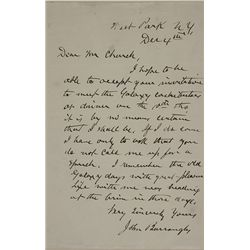 West Park N.Y.
Dec 4th
Dear Mr Church,
I hope to be
able to accept your invitation
to meet the Galaxy contributors
at dinner on the
it is by no means certain
that I shall be. If I do come
I have only to ask that you
do not call me up for a
speech. I remember the old
Galaxy days with great pleasure
Life with me was beading
at the brim in those days.
Very Sincerely Yours
John Burroughs